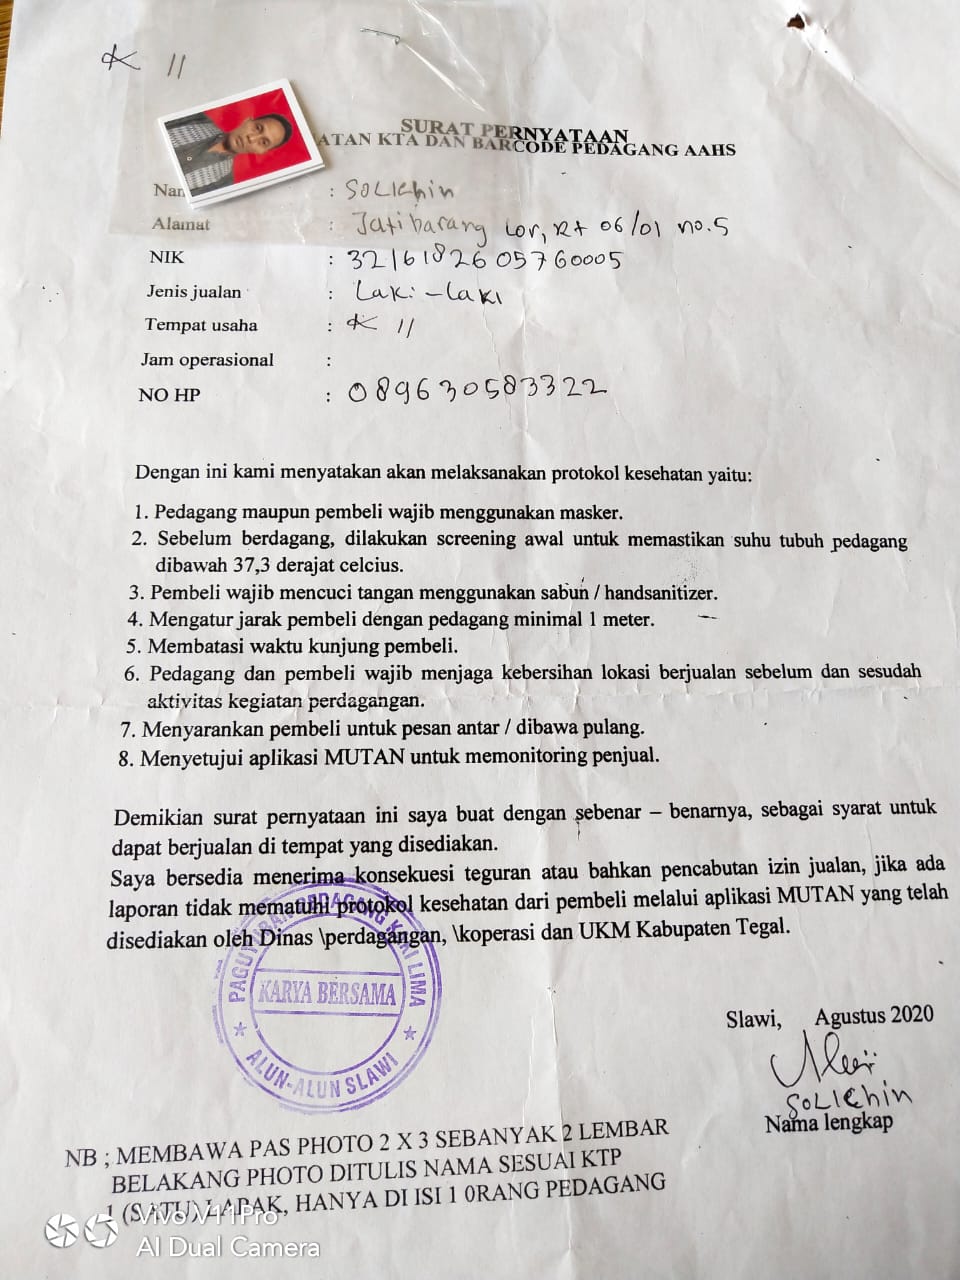 K 11
SURAT PERNYATAAN
ATAN KTA DAN BARCODE PEDAGANG AAHS
Nan : SOLIChin
Alamat : Jatibarang Lor, Rt 06/01 no.5
NIK : 3216182605760005
Jenis jualan : Laki-laki
Tempat usaha : K 11
Jam operasional :
NO HP : 089630583322
Dengan ini kami menyatakan akan melaksanakan protokol kesehatan yaitu:
1. Pedagang maupun pembeli wajib menggunakan masker.
2. Sebelum berdagang, dilakukan screening awal untuk memastikan suhu tubuh pedagang
dibawah 37,3 derajat celcius.
3. Pembeli wajib mencuci tangan menggunakan sabun / handsanitizer.
4. Mengatur jarak pembeli dengan pedagang minimal 1 meter.
5. Membatasi waktu kunjung pembeli.
6. Pedagang dan pembeli wajib menjaga kebersihan lokasi berjualan sebelum dan sesudah
aktivitas kegiatan perdagangan.
7. Menyarankan pembeli untuk pesan antar / dibawa pulang.
8. Menyetujui aplikasi MUTAN untuk memonitoring penjual.
Demikian surat pernyataan ini saya buat dengan sebenar – benarnya, sebagai syarat untuk
dapat berjualan di tempat yang disediakan.
Saya bersedia menerima konsekuesi teguran atau bahkan pencabutan izin jualan, jika ada
laporan tidak mematuhi protokol kesehatan dari pembeli melalui aplikasi MUTAN yang telah
disediakan oleh Dinas \perdagangan, \koperasi dan UKM Kabupaten Tegal.
PAGUYUBAN PEDAGANG KAKI LIMA
KARYA BERSAMA
ALUN-ALUN SLAWI
Slawi, Agustus 2020
SOLIChin
Nama lengkap
NB ; MEMBAWA PAS PHOTO 2 X 3 SEBANYAK 2 LEMBAR
BELAKANG PHOTO DITULIS NAMA SESUAI KTP
1 (SATU) LAPAK, HANYA DI ISI 1 0RANG PEDAGANG
Vivo V11Pro
AI Dual Camera